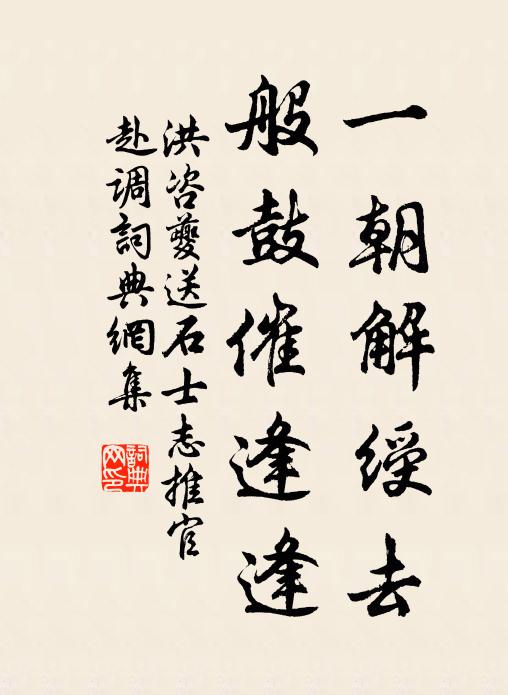 一朝解綬去
般鼓催逢逢
洪咨夔送石士志推官
赴調詞典網集
詞典
网印